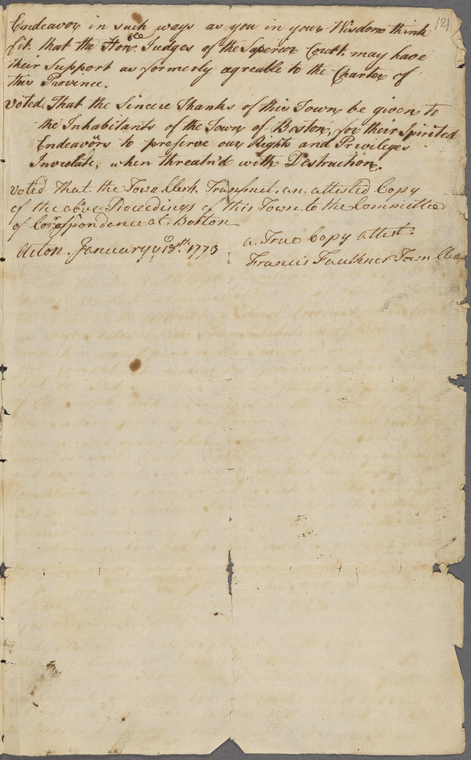 121
Endeavor in such ways as you in your Wisdom think
fit. that the Honble Judges of the Superior Court may have
their Support as formerly agreable to the Charter of
this Province.
Voted That the Sincere Thanks of this Town be given to
the Inhabitants of the Town of Boston, for their Spirited
Endeavors to preserve our Rights and Privileges
Inviolate, when threatn'd with Destruction.
Voted That the Town Clerk Transmit, an attested Copy
of the above Proceedings of this Town to the Committee
of Correspondence at Boston
Acton. January ye 18th. 1773
a True Copy attest
Francis Faulkner Town Clerk